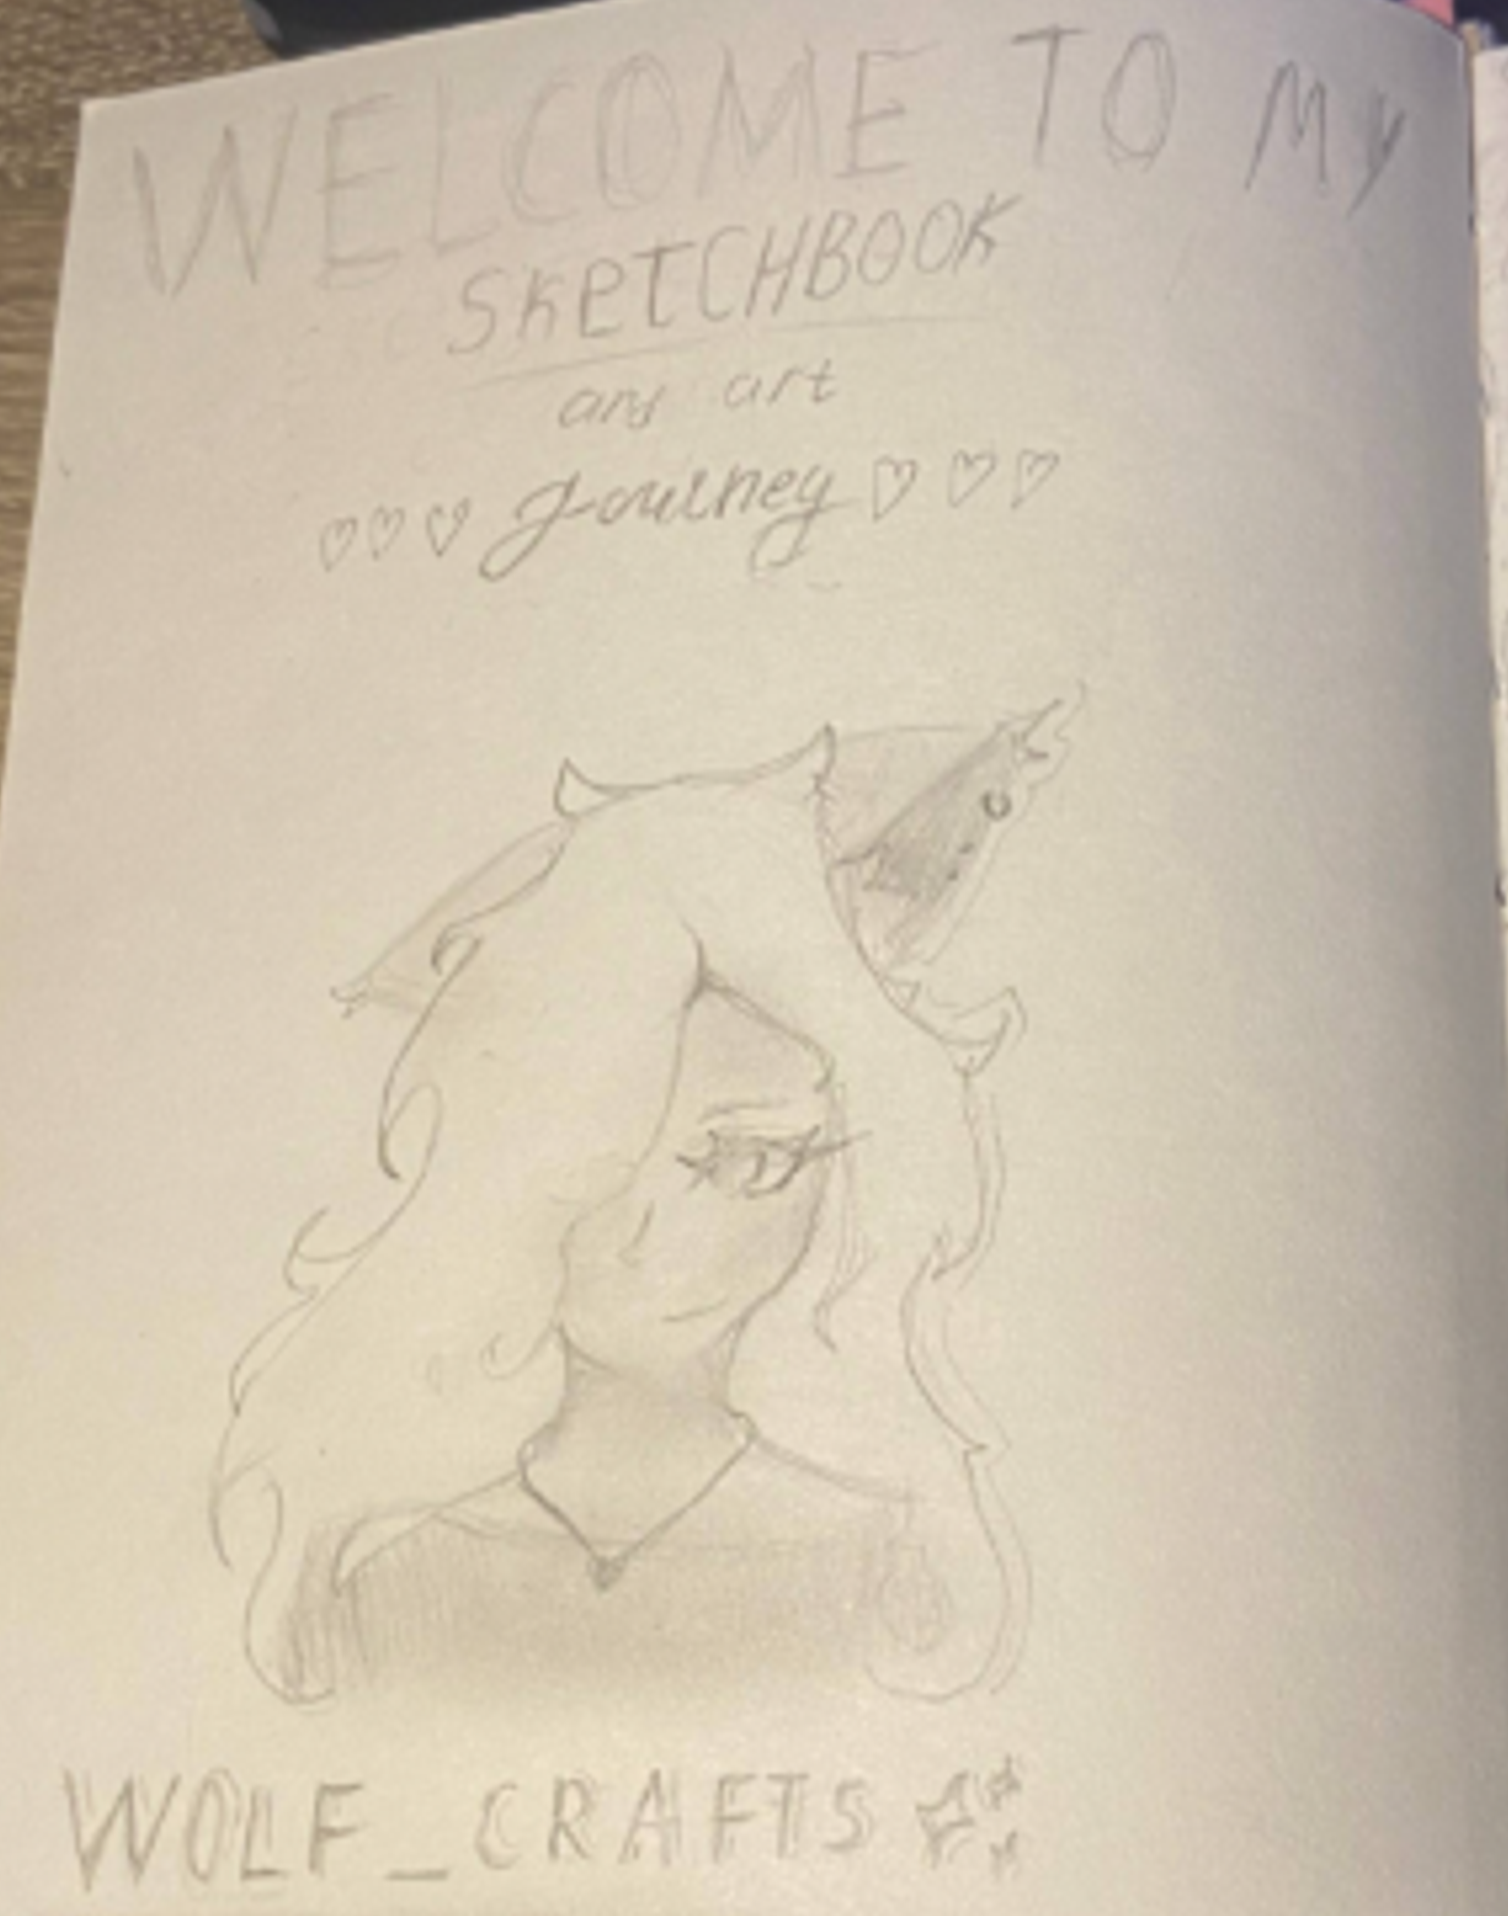 WELCOME TO MY
SKETCHBOOK
any art
Journey
WOLF_CRAFTS